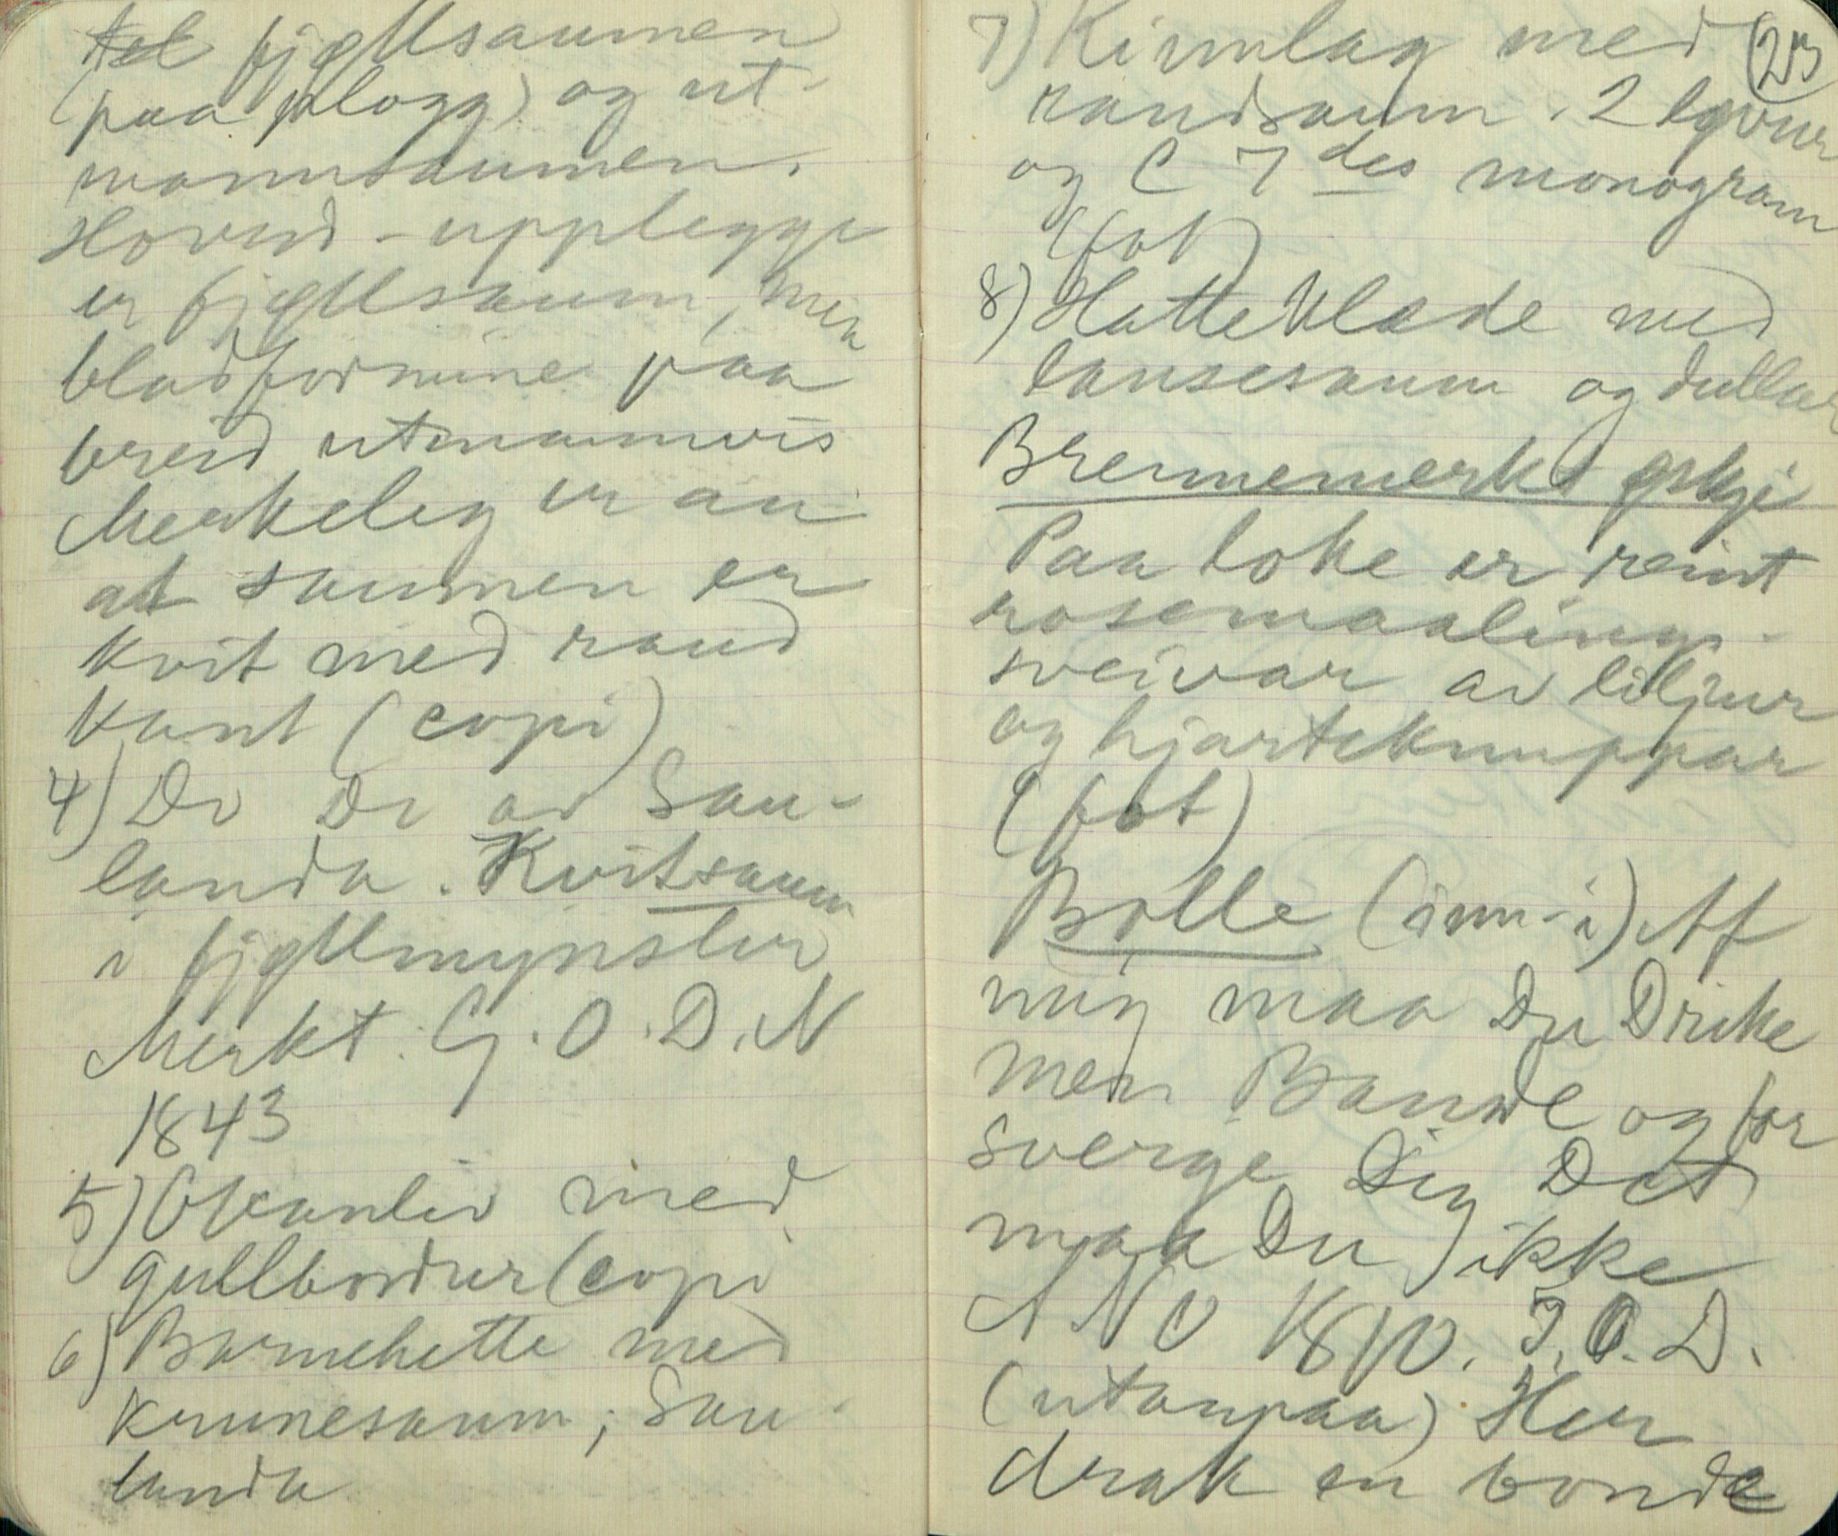 tel fjøllsaumen
(paa plogg) og ut-
mannsaumen.
Hovud-upplegge
er fjøllsaum, men
bladformine paa
breid utmannvis
Merkeleg er au
at saumen er
kvit med raud
kant (copi)
4) Do Do av Sau-
landa. Kvitsaum
i fjøllmynster
Merkt. G. O. D. N
1843
5) Okanliv med
gullbordur (copi
6) Barnehette med
krunesaum, Sau-
landa
23
7) Kinnlag med
randsaum. 2 løvur
og C 7 des monogram
(fot)
8) Hatteklæde med
lansesaum og dullar
Brennemerkt øskje
Paa loke er reint
rosemaalings-
sveivar av liljur
og hjarteknuppar
(fot)
Bolle (inn-i) Af
mig maa Du Drike
men Bande og for
sverge Dig Det
maa Du ikke
ANO 1810. J. O. D.
(utanpaa) Her
drak en bonde